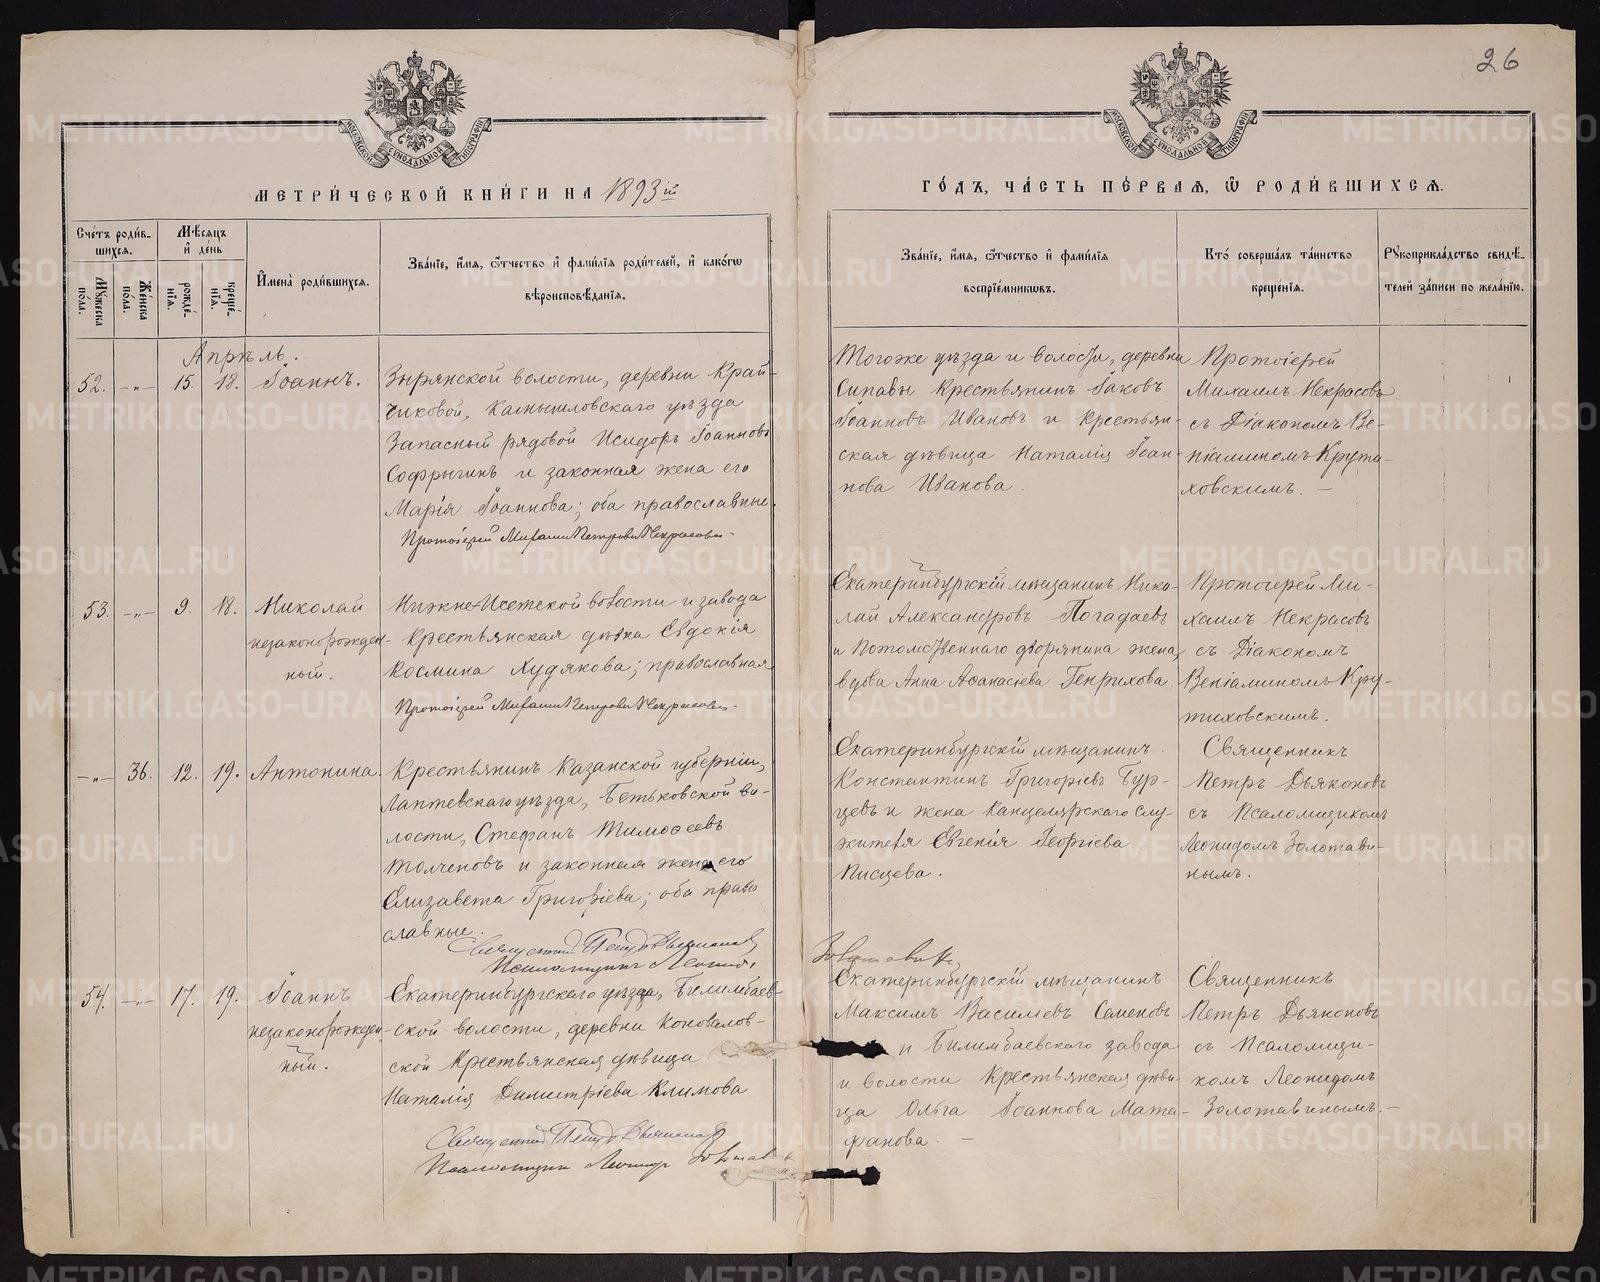 26
МОСКОВСКОЙ СѴНОДАЛЬНОЙ ТИПОГРАФІИ
МОСКОВСКОЙ СѴНОДАЛЬНОЙ ТИПОГРАФІИ
МЕТРИ́ЧЕСКОЙ КНИ́ГИ НА 1893 ій
ГО́ДЪ, ЧА́СТЬ ПЕ́РВАЯ, Ѡ РОДИ́ВШИХСЯ.
Сче́тъ роди́в-
шихся.
Мужеска пола.
Же́нска по́ла.
Мѣ́сяцъ
и де́нь
рожде́-
нія.
креще́-
нія.
Имена̀ роди́вшихся.
Зва́ніе, и́мя, ѻ҆́тчество и фами́лія роди́телей, и како́гѡ
вѣроисповѣ́данія.
Зва́ніе, и́мя, ѻ҆́тчество и фами́лія
воспріе́мникѡвъ.
Кто́ соверша́лъ та́инство
креще́нія.
Рукоприкла́дство свидѣ́-
телей за́писи по жела́нію.
Апрѣль.
52. -"- 15. 18. Іоаннъ.
Зырянской волости, деревни Край-
чиковой, Камышловскаго уѣзда
Запасный рядовой Исидоръ Іоанновъ
Софрыгинъ и законная жена его
Марія Іоаннова; оба православные.
Протоіерей Михаилъ Петровъ Некрасовъ
Тогоже уѣзда и волости, деревни
Сипавы крестьянинъ Іаковъ
Іоанновъ Ивановъ и крестьян-
ская дѣвица Наталія Іоан-
нова Иванова.
Протоіерей
Михаилъ Некрасовъ
съ Діакономъ Ве-
ніаминомъ Крути-
ховскимъ. —
53. -"- 9. 18. Николай
незаконорожден-
ный.
Нижне-Исетской волости и завода
крестьянская дѣвка Евдокія
Космина Худякова; православная
Протоіерей Михаилъ Петровъ Некрасовъ
Екатеринбургскій мѣщанинъ Нико-
лай Александровъ Погадаевъ
и Потомственнаго дворянина жена,
вдова Анна Аѳанасіева Генрихова
Протоіерей Ми-
хаилъ Некрасовъ
съ Діакономъ
Веніаминомъ Кру-
тиховскимъ.
-"- 36. 12. 19. Антонина.
Крестьянинъ Казанской губерніи,
Лаишевскаго уѣзда, Бетьковской во-
лости, Стефанъ Тимоѳеевъ
Толченовъ и законная жена его
Елизавета Григоріева; оба право
славные.
Священникъ Петръ Дьяконовъ
Псаломщикъ Леонидъ
Золотавинъ
Екатеринбургскій мѣщанинъ
Константинъ Григоріевъ Бур-
цевъ и жена Канцелярскаго слу-
жителя Евгенія Георгіева
Писцева.
Священникъ
Петръ Дьяконовъ
съ Псаломщикомъ
Леонидомъ Золотави-
нымъ.
54. -"- 17. 19. Іоаннъ
незаконорожден
ный.
Екатеринбургскаго уѣзда, Билимбаев-
ской волости, деревни Коновалов-
ской крестьянская дѣвица
Наталія Димитріева Климова
Священникъ Петръ Дьяконовъ
Псаломщикъ Леонидъ Золотавинъ
Екатеринбургскій мѣщанинъ
Максимъ Василіевъ Семеновъ
и Билимбаевскаго завода
и волости крестьянская дѣви-
ца Ольга Іоаннова Мата-
фанова. —
Священникъ
Петръ Дьяконовъ
съ Псаломщи-
комъ Леонидомъ
Золотавинымъ. —
METRIKI.GASO-URAL.RU